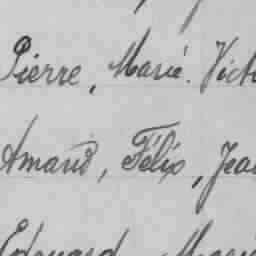 Pierre, Marie. Vict
Amand, Félix, Jea
Edouard Mari